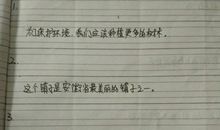 1.
为了保护环境，我们应该种植更多的树木。
2.
这个镇子是安徽省最美丽的镇子之一。
3